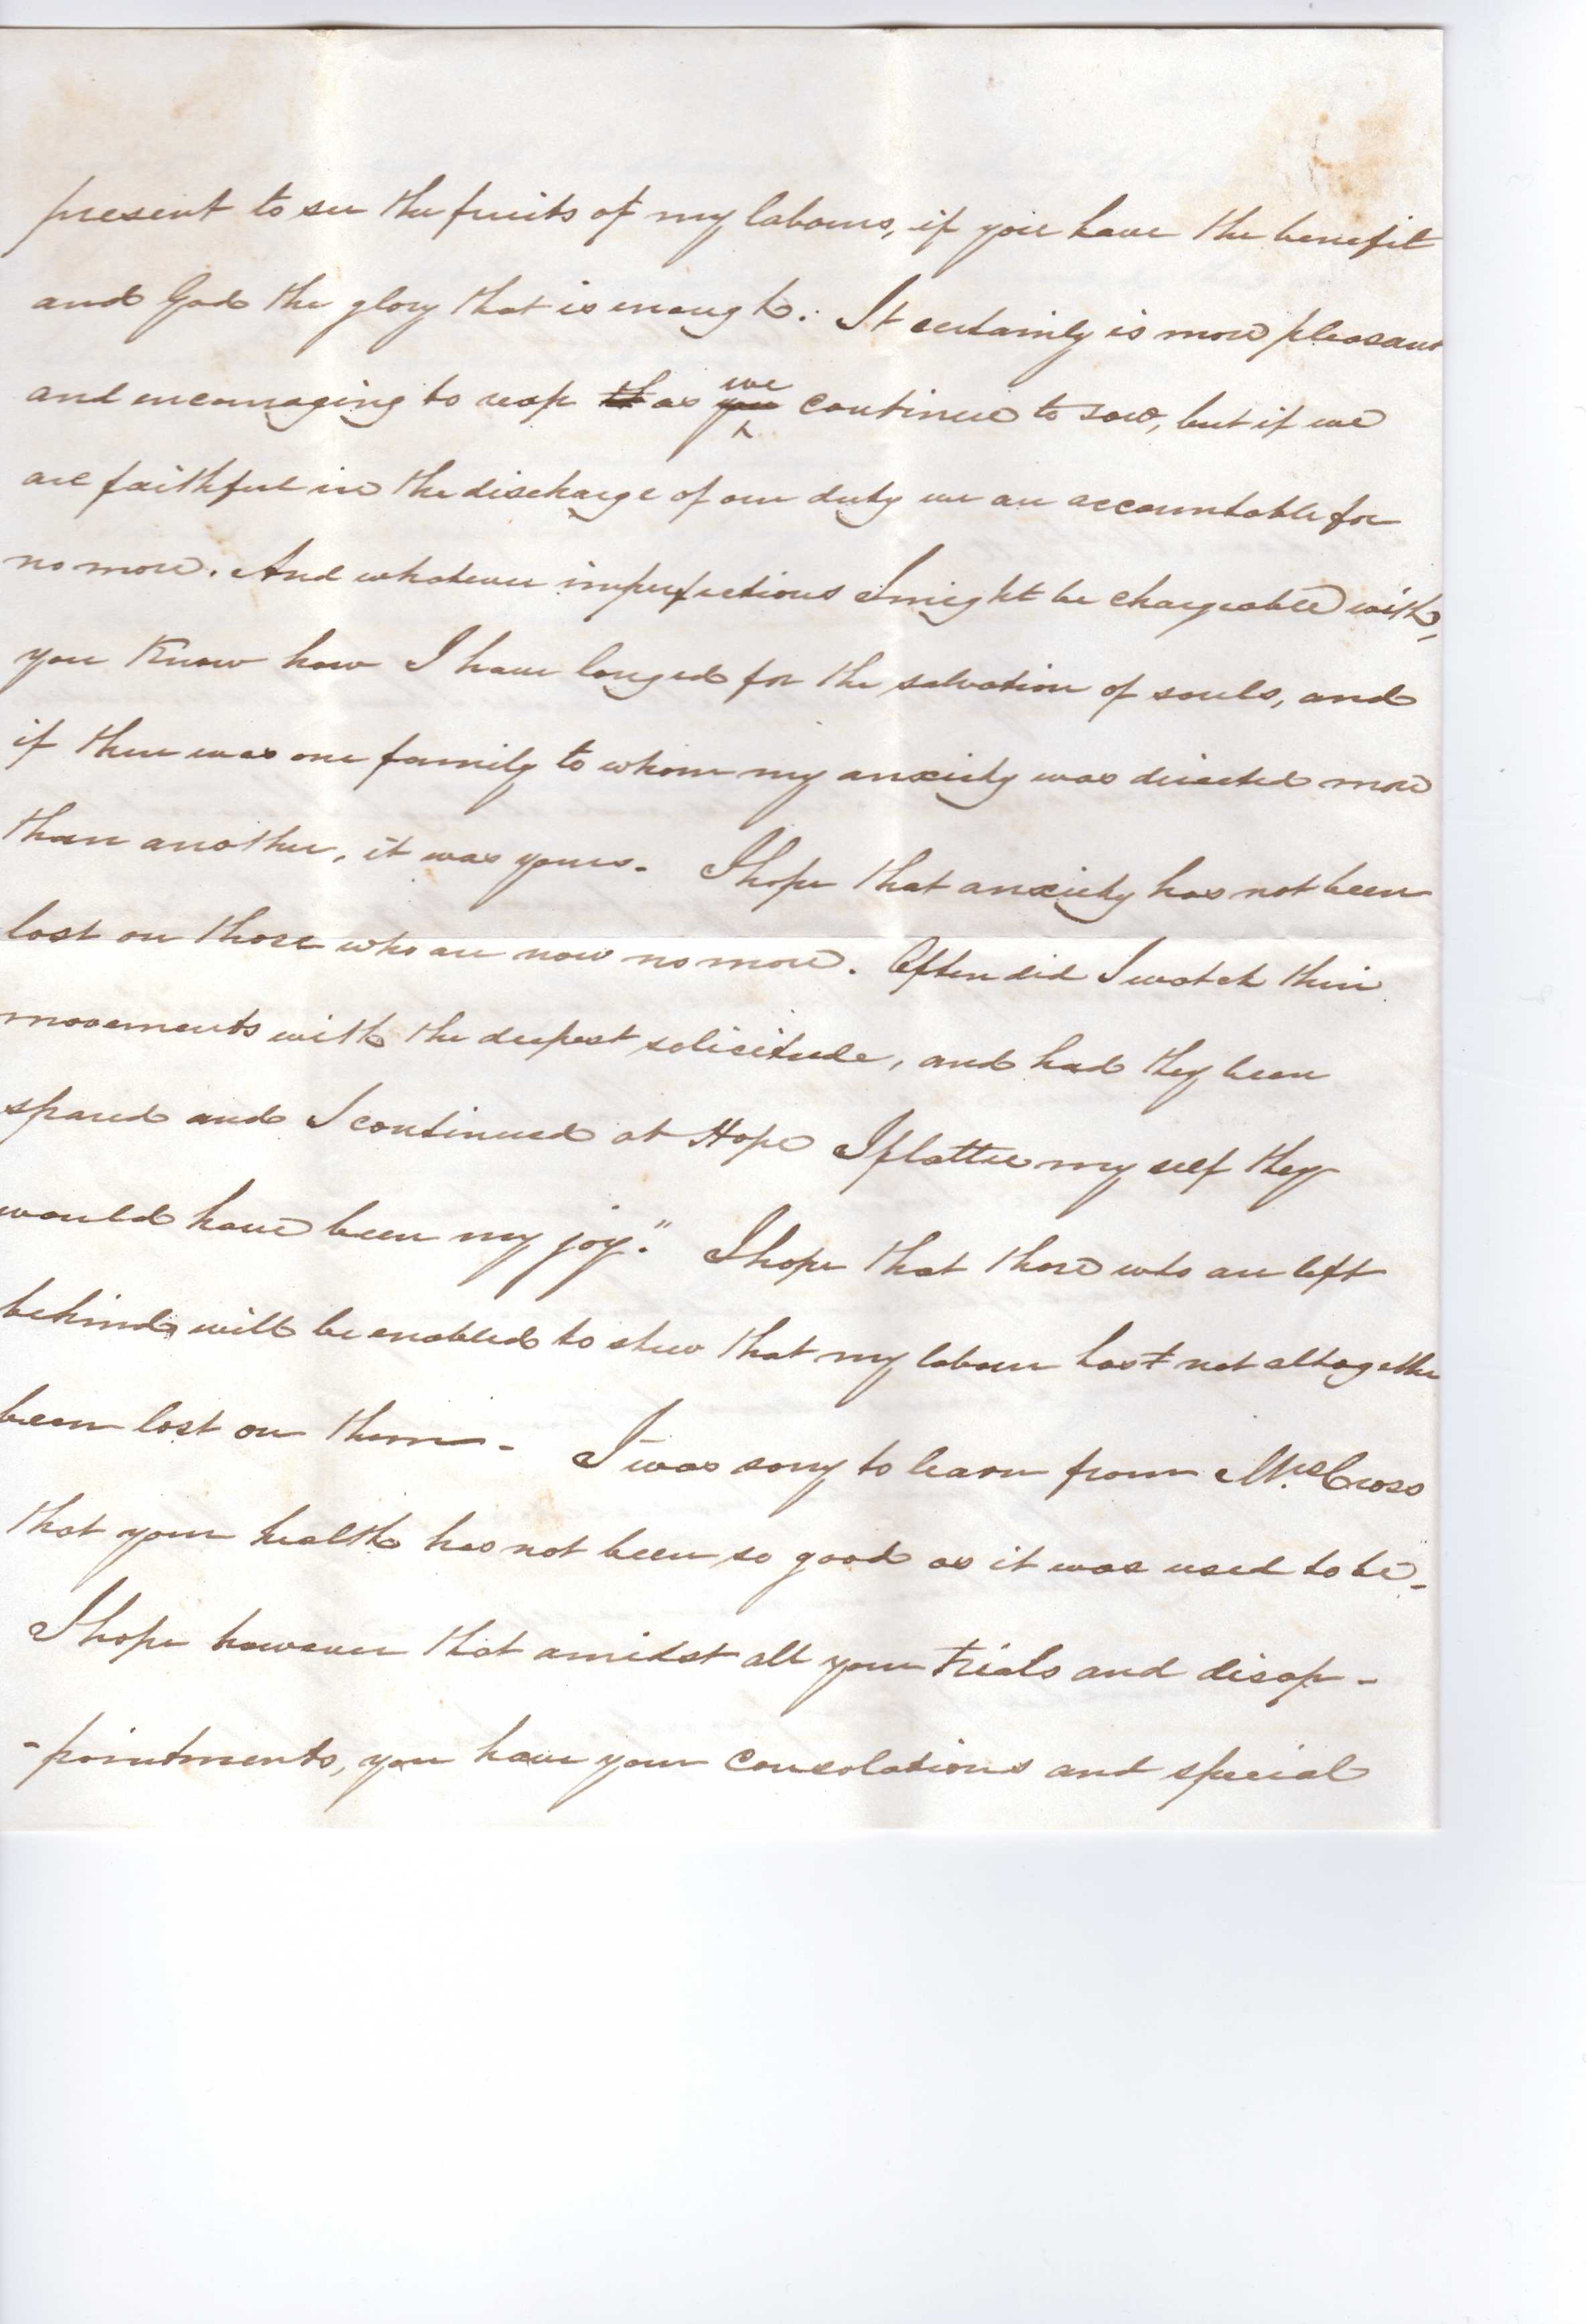 present to see the fruits of my labours, if you have the benefit
and God the glory that is enough. It certainly is more pleasant
and encouraging to reap th as you we continue to sow, but if we
are faithful in the discharge of our duty we are accountable for
no more. And whatever imperfections I might be chargeable with,
you know how I have longed for the salvation of souls, and
if there was one family to whom my anxiety was directed more
than another, it was yours. I hope that anxiety has not been
lost on those who are now no more. Often did I watch their
movements with the deepest solicitude, and had they been
spared and I continued at Hope I flatter my self they
would have been my joy." I hope that those who are left
behind will be enabled to shew that my labour hast not altogether
been lost on them - I was sorry to learn from Mrs. Cross
that your health has not been so good as it was used to be -
I hope however that amidst all your trials and disap-
-pointments, you have your consolations and special